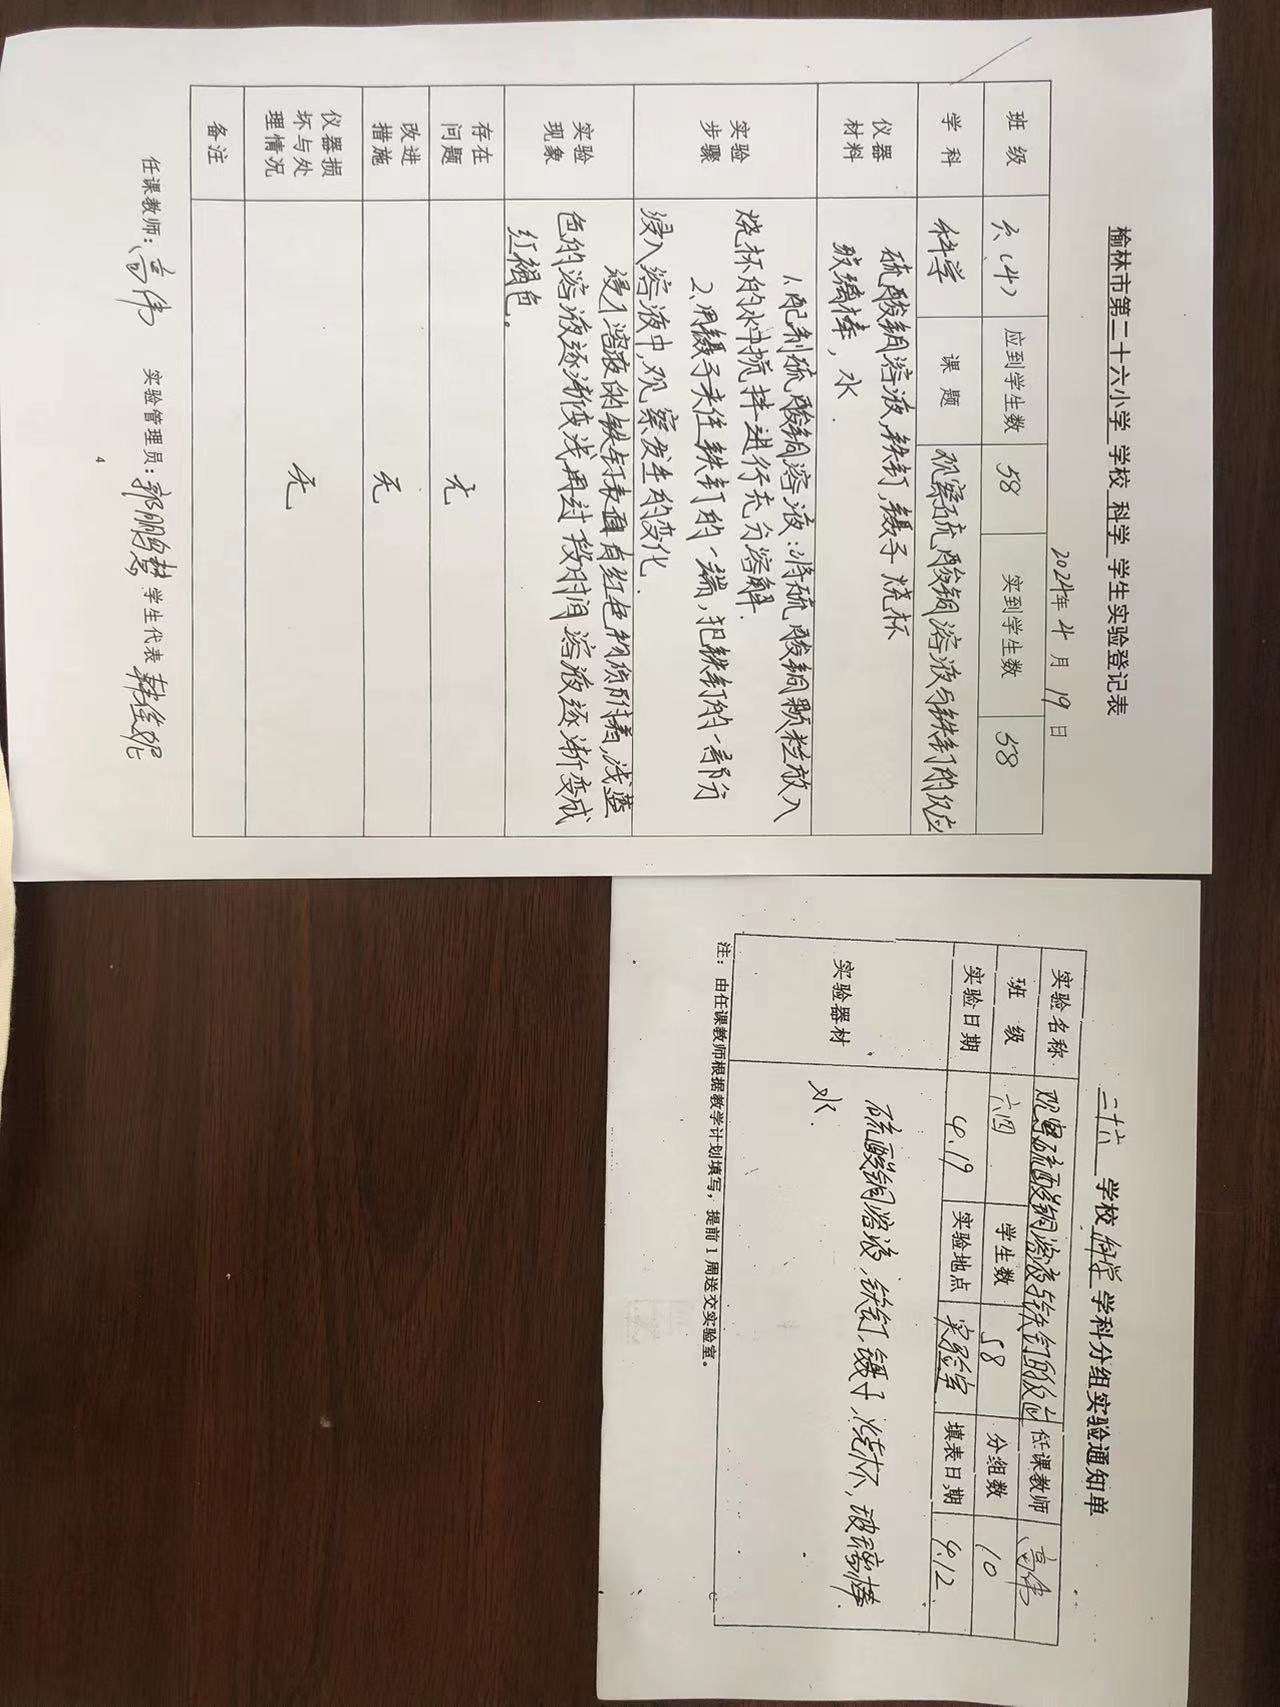 榆林市第二十六小学 学校 科学 学生实验登记表
2024年 4 月 19 日
班 级 六(4) 应到学生数 58 实到学生数 58
学 科 科学 课 题 观察硫酸铜溶液与铁钉的反应
仪器材料
硫酸铜溶液,铁钉,镊子 烧杯
玻璃棒,水.
实验步骤
1.配制硫酸铜溶液:将硫酸铜颗粒放入
烧杯的水中搅拌进行充分溶解.
2.用镊子夹住铁钉的一端,把铁钉的一部分
浸入溶液中,观察发生的变化.
实验现象
浸入溶液的铁钉表面有红色物质附着,浅蓝
色的溶液逐渐变浅再过一段时间溶液逐渐变成
红褐色。
存在问题 无
改进措施 无
仪器损坏与处理情况 无
备注
任课教师:高伟 实验管理员:郭鹏 学生代表
4
二十六 学校 科学 学科分组实验通知单
实验名称 观察硫酸铜溶液与铁钉的反应 任课教师 高伟
班 级 六四 学生数 58 分组数 10
实验日期 4.19 实验地点 实验室 填表日期 4.12
实验器材
硫酸铜溶液,铁钉,镊子,烧杯,玻璃棒
水.
注:由任课教师根据教学计划填写,提前1周送交实验室。